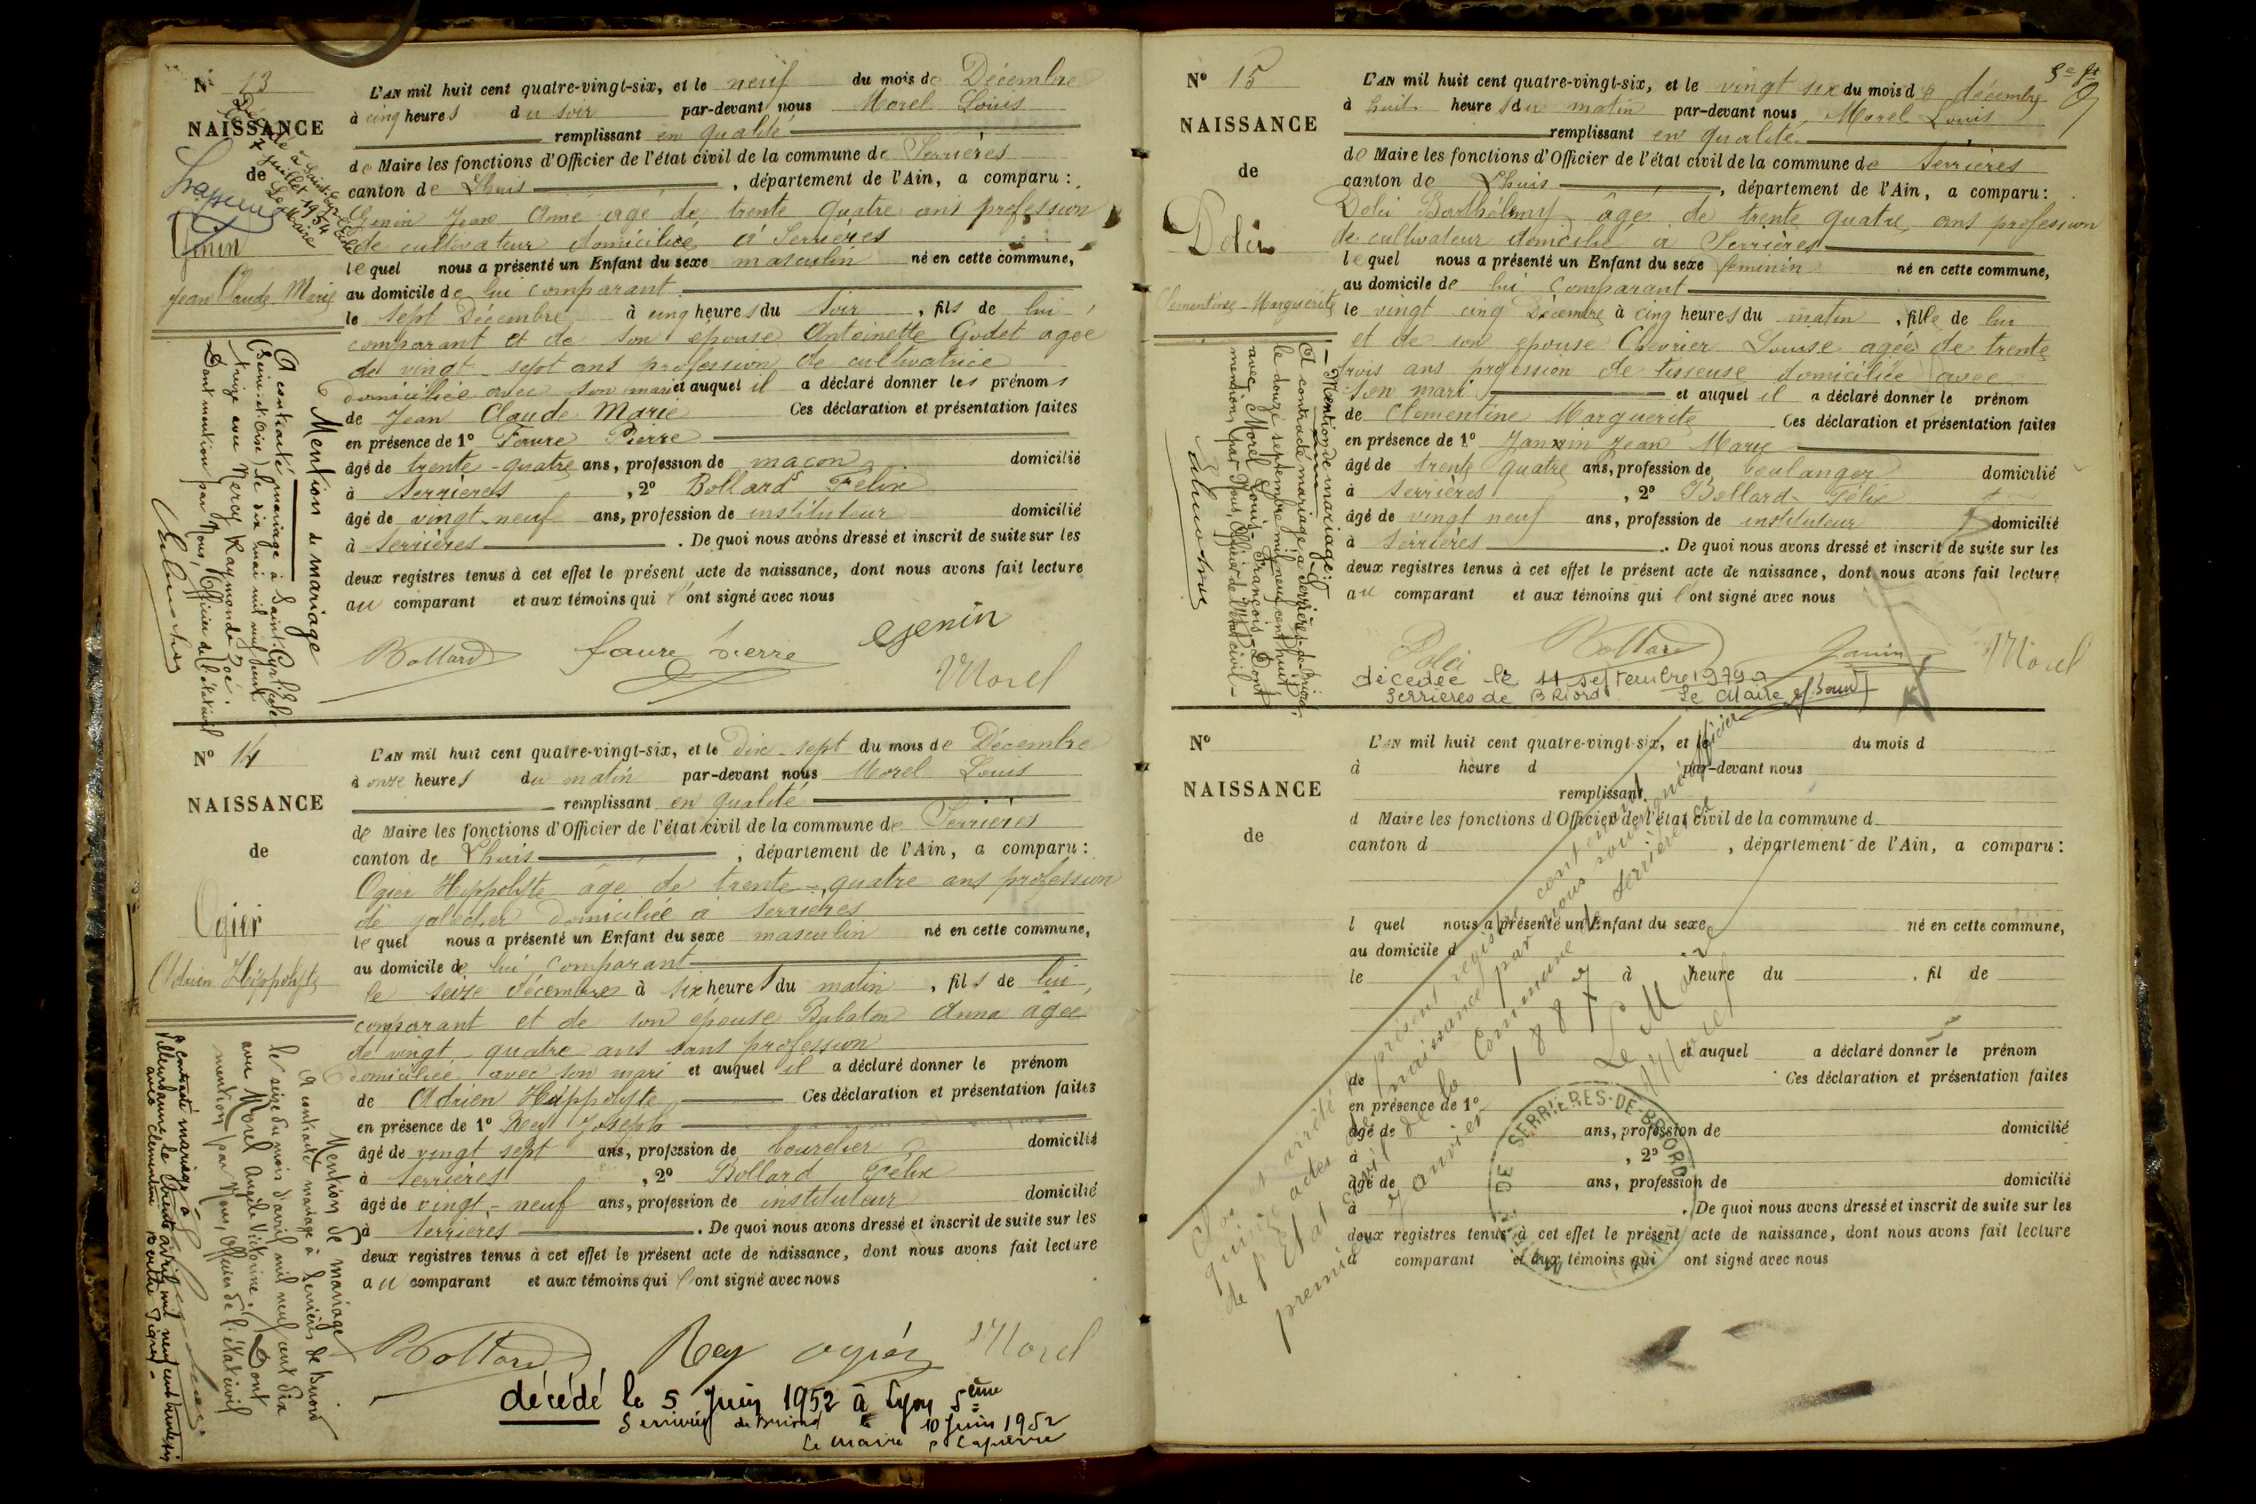 N° 13
NAISSANCE
de
Genin
Jean Claude Marie
L'AN mil huit cent quatre-vingt-six, et le neuf du mois de Décembre
à cinq heures du soir par-devant nous Morel Louis
remplissant en qualité
de Maire les fonctions d'Officier de l'état civil de la commune de Serrières
canton de Lhuis, département de l'Ain, a comparu :
Genin Jean Aimé agé de trente quatre ans profession
de cultivateur domicilié à Serrières
lequel nous a présenté un Enfant du sexe masculin né en cette commune,
au domicile de lui comparant
le sept Décembre à cinq heures du soir, fils de lui
comparant et de son épouse Antoinette Godet agée
de vingt-sept ans profession de cultivatrice
domiciliée avec son mari et auquel il a déclaré donner les prénoms
de Jean Claude Marie Ces déclaration et présentation faites
en présence de 1° Faure Pierre
âgé de trente-quatre ans, profession de maçon domicilié
à Serrières, 2° Bollard Félix
âgé de vingt-neuf ans, profession de instituteur domicilié
à Serrières. De quoi nous avons dressé et inscrit de suite sur les
deux registres tenus à cet effet le présent acte de naissance, dont nous avons fait lecture
au comparant et aux témoins qui l'ont signé avec nous
Bollard faure pierre Genin
Morel
Mention de mariage
A contracté mariage à Saint-Cyr-l'Ecole
(Seine-et-Oise) le dix mai mil neuf cent
treize avec Nercy Raymonde Zoé.
Dont mention par Nous, Officier de l'état civil
N° 14
NAISSANCE
de
Ogier
Adrien Hippolyte
L'AN mil huit cent quatre-vingt-six, et le Dix-sept du mois de Décembre
à onze heures du matin par-devant nous Morel Louis
remplissant en qualité
de Maire les fonctions d'Officier de l'état civil de la commune de Serrières
canton de Lhuis, département de l'Ain, a comparu :
Ogier Hippolyte agé de trente-quatre ans profession
de domiciliée à Serrières
lequel nous a présenté un Enfant du sexe masculin né en cette commune,
au domicile de lui comparant
le seize décembre à six heures du matin, fils de lui
comparant et de son épouse Anna agée
de vingt quatre ans sans profession
domiciliée avec son mari et auquel il a déclaré donner le prénom
de Adrien Hippolyte Ces déclaration et présentation faites
en présence de 1° Rey Joseph
âgé de vingt sept ans, profession de bourelier domicilié
à Serrières, 2° Bollard Félix
âgé de vingt-neuf ans, profession de instituteur domicilié
à Serrières. De quoi nous avons dressé et inscrit de suite sur les
deux registres tenus à cet effet le présent acte de naissance, dont nous avons fait lecture
au comparant et aux témoins qui l'ont signé avec nous
Bollard Rey ogier Morel
décédé le 5 Juin 1952 à Lyon 5ème
Serrières de Briord le 10 Juin 1952
Le Maire
Mention de mariage
A contracté mariage à Serrières de Briord
le seize du mois d'avril mil neuf cent dix
avec Morel Angèle Victorine. Dont
mention par Nous, Officier de l'état civil
A contracté mariage à
Villeurbanne le trente avril mil neuf cent trente six
avec Clémentine
N° 15
NAISSANCE
de
Dolei
Clementine Marguerite
L'AN mil huit cent quatre-vingt-six, et le vingt six du mois de décembre
à huit heures du matin par-devant nous Morel Louis
remplissant en qualité
de Maire les fonctions d'Officier de l'état civil de la commune de Serrières
canton de Lhuis, département de l'Ain, a comparu :
Dolei Barthélemy âgé de trente quatre ans profession
de cultivateur domicilié à Serrières
lequel nous a présenté un Enfant du sexe feminin né en cette commune,
au domicile de lui comparant
le vingt cinq Décembre à cinq heures du matin, fille de lui
et de son épouse Chevrier Louise agée de trente
trois ans profession de tisseuse domiciliée avec
son mari et auquel il a déclaré donner le prénom
de Clementine Marguerite Ces déclaration et présentation faites
en présence de 1° Jannin Jean Marie
âgé de trente quatre ans, profession de boulanger domicilié
à Serrières, 2° Bollard Félix
âgé de vingt neuf ans, profession de instituteur domicilié
à Serrières. De quoi nous avons dressé et inscrit de suite sur les
deux registres tenus à cet effet le présent acte de naissance, dont nous avons fait lecture
au comparant et aux témoins qui l'ont signé avec nous
Dolei Bollard Janin Morel
décédée le 11 septembre 1979 à
Serrières de Briord Le Maire
Mention de mariage:
A contracté mariage à Serrières-de-Briord,
le douze septembre mil neuf cent huit
avec Morel Louis-François. Dont
mention, par Nous, Officier de l'état civil
N°
NAISSANCE
de
L'AN mil huit cent quatre-vingt-six, et le du mois d
à heure d par-devant nous
remplissant
d Maire les fonctions d'Officier de l'état civil de la commune d
canton d, département de l'Ain, a comparu :
l quel nous a présenté un Enfant du sexe né en cette commune,
au domicile d
le à heure du, fil de
et auquel a déclaré donner le prénom
de Ces déclaration et présentation faites
en présence de 1°
âgé de ans, profession de domicilié
à, 2°
âgé de ans, profession de domicilié
à. De quoi nous avons dressé et inscrit de suite sur les
deux registres tenus à cet effet le présent acte de naissance, dont nous avons fait lecture
a comparant et aux témoins qui ont signé avec nous
Clos et arrêté le présent registre contenant
quinze actes de naissance par nous soussigné officier
de l'Etat civil de la Commune de Serrières, ce
premier Janvier 1887
Le Maire
Morel
MAIRIE DE SERRIÈRES-DE-BRIORD